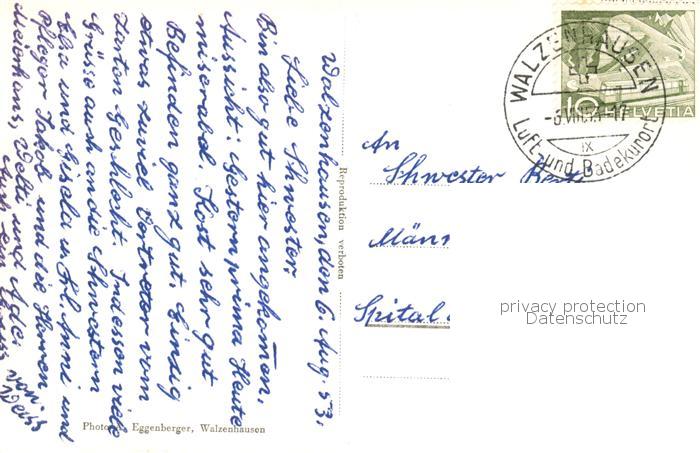 Walzenhausen, den 6. Aug. 53.
Liebe Shwester:
Bin also gut hier angekomen,
Aussicht: Gestern prima Heute
miserabel. Kost sehr gut
Befinden ganz gut. Einzig
etwas zuviel Vertreter vom
Zarten Geshlecht. Indessen viele
Grüsse auch an die Shwestern
Elsa und Gisela u. Frl. Anni und
Pfleger Jakob und die Herren
Meierhans, Welti und Ade.
von
Weiss
Reproduktion verboten
Photo Eggenberger, Walzenhausen
An
Shwester
Männ
Spital.
WALZENHAUSEN
-6.VIII.53.-17
IX
Luft- und Badekurort
10 HELVETIA
privacy protection
Datenschutz